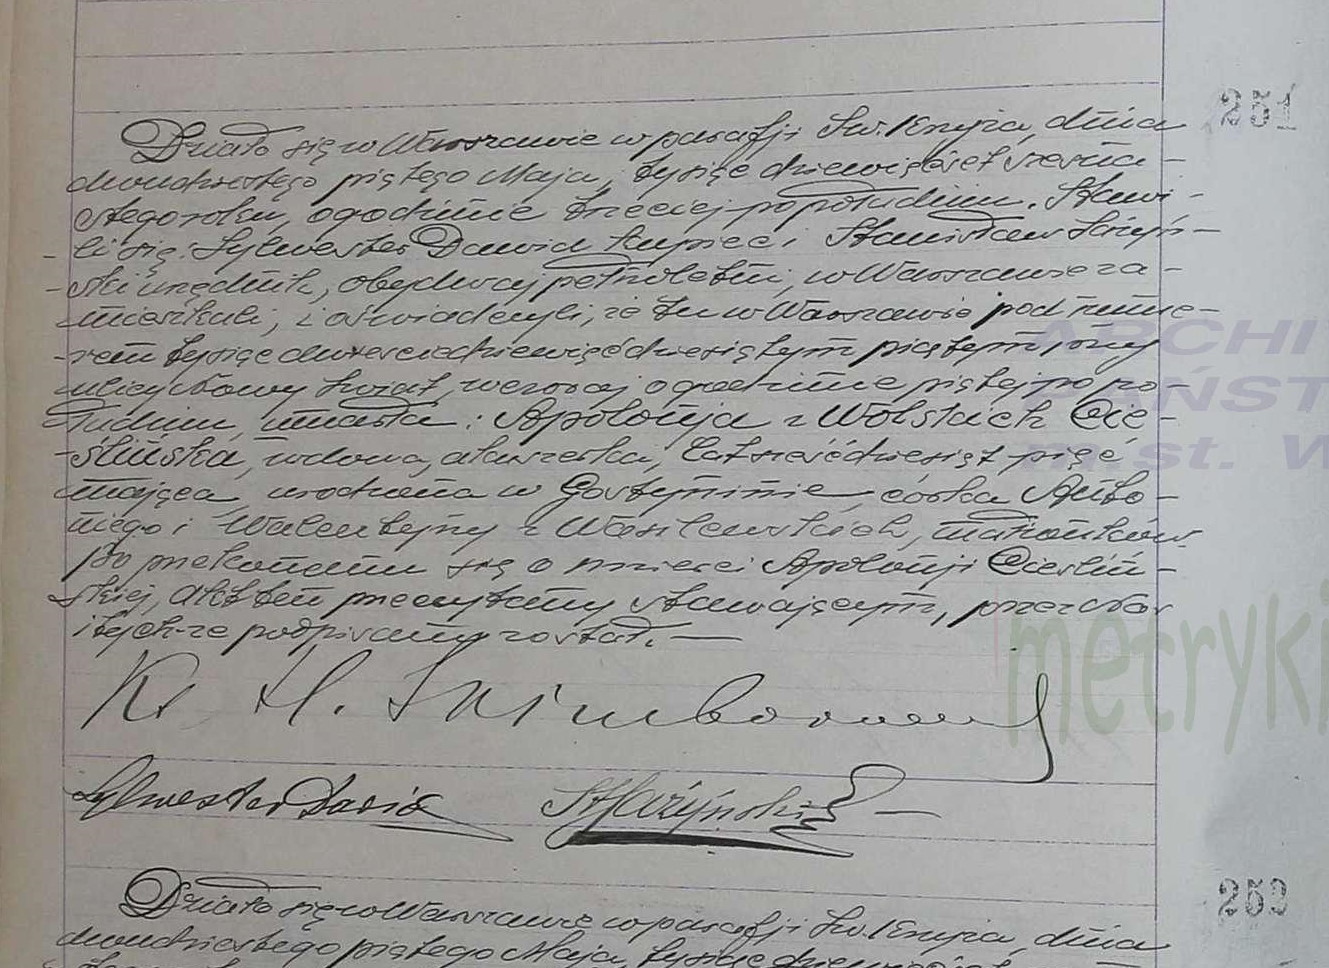 251
Działo się w Warszawie w parafji Św. Krzyża, dnia
dwudziestego piątego Maja, tysiąc dziewięćset szesna-
stego roku, o godzinie trzeciej popołudniu. Stawi-
-li się: Sylwester Dawid kupiec i Stanisław
-ski urzędnik, obydwaj pełnoletni, w Warszawie za-
-mieszkali, i oświadczyli, że tu w Warszawie pod nume-
-rem tysiąc dwieście dziewięćdziesiątym piątym, przy
ulicy Nowy Świat, wczoraj o godzinie piątej po po-
łudniu, umarła: Apolonja z Wolskich Cie-
-ślińska, wdowa, lat sześćdziesiąt pięć
mająca, urodzona w Gostyninie córka Anto-
niego i Walentyny z Wasilewskich, małżonków.
Po przekonaniu się o śmierci Apolonji Cieśliń-
skiej, Akt ten przeczytany stawającym, przez nas
i tychże podpisany został. —
Ks. H.
Sylwester Dawid
253
Działo się w Warszawie w parafji Św. Krzyża, dnia
dwudziestego piątego Maja, tysiąc
ARCHI
PAŃST
m.st. W
metryki